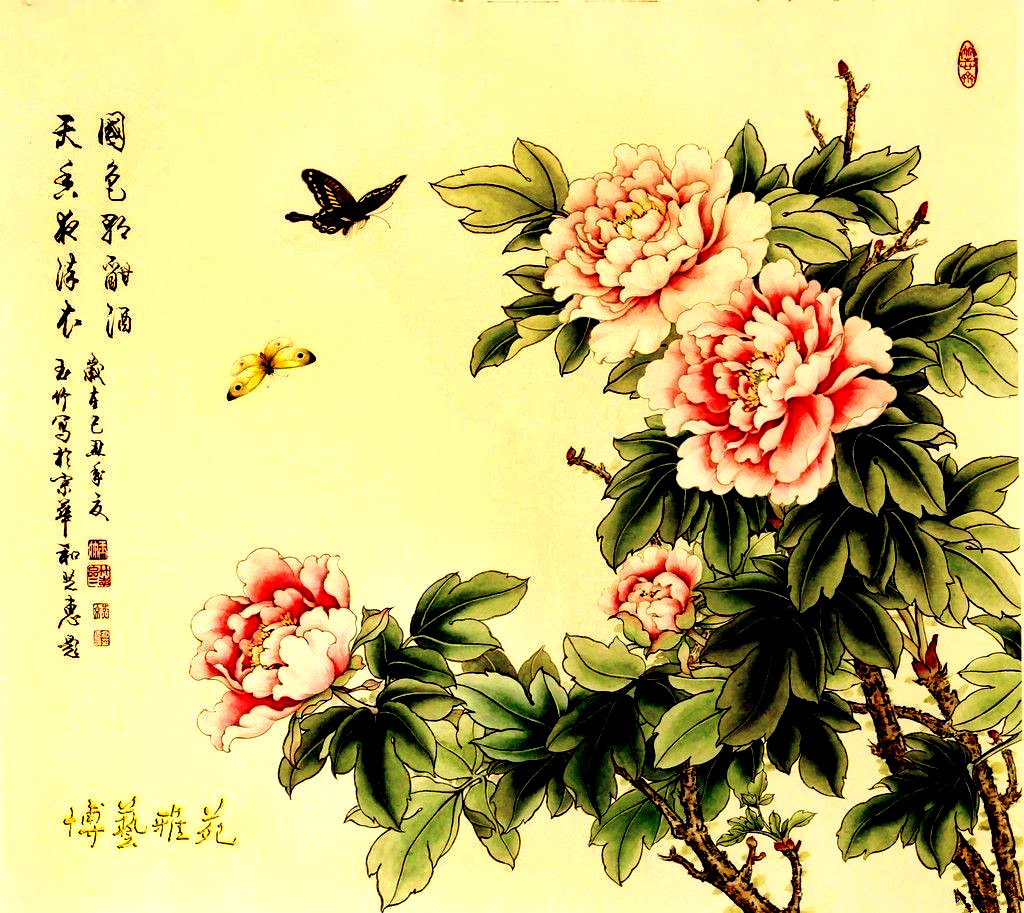 國色朝酣酒
天香夜染衣
歲在己丑年夏
玉竹寫於京華 和芝惠題
博藝雅苑